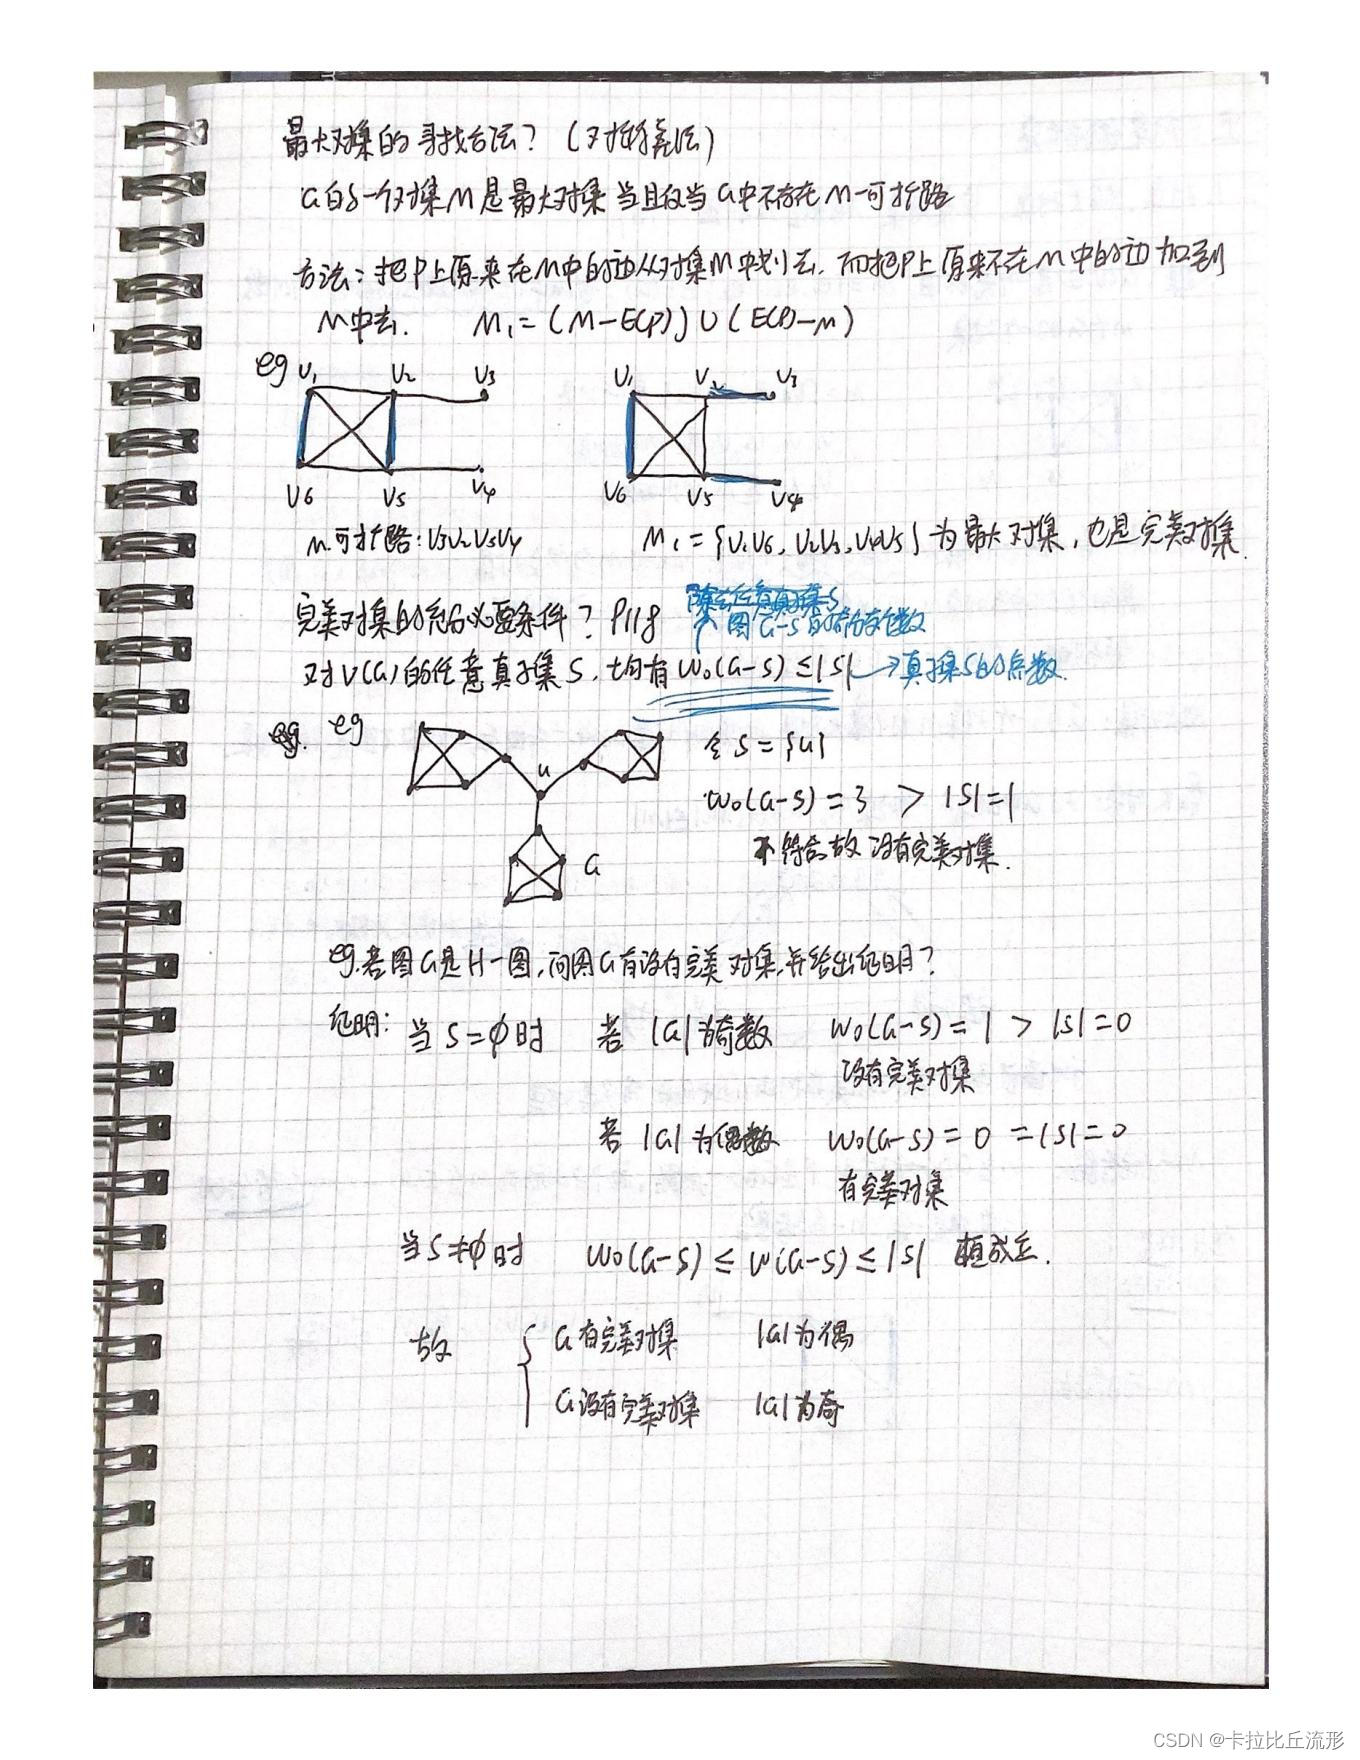 最大对集的寻找方法？（对称差法）
G的一个对集M是最大对集当且仅当G中不存在M-可扩路
方法：把P上原来在M中的边从对集M中划去，而把P上原来不在M中的边加到
M中去. M₁=(M-E(P))∪(E(P)-M)
eg V₁ V₂ V₃ V₁ V₂ V₃
V₆ V₅ V₄ V₆ V₅ V₄
M可扩路：V₃V₂V₅V₄ M₁={V₁V₆, V₂V₃, V₄V₅}为最大对集，也是完美对集.
除去任意真子集S
图G-S的奇分支数
完美对集的充分必要条件？P118
对V(G)的任意真子集S，均有W₀(G-S)≤|S|→真子集S的点数.
eg. eg
u
G
令S={u}
W₀(G-S)=3 > |S|=1
不符合,故没有完美对集.
eg.若图G是H-图,问图G有没有完美对集,并给出证明?
证明: 当S=∅时 若|G|为奇数 W₀(G-S)=1 > |S|=0
没有完美对集
若|G|为偶数 W₀(G-S)=0=|S|=0
有完美对集
当S≠∅时 W₀(G-S)≤W(G-S)≤|S| 恒成立.
故 { G有完美对集 |G|为偶
G没有完美对集 |G|为奇
CSDN @卡拉比丘流形